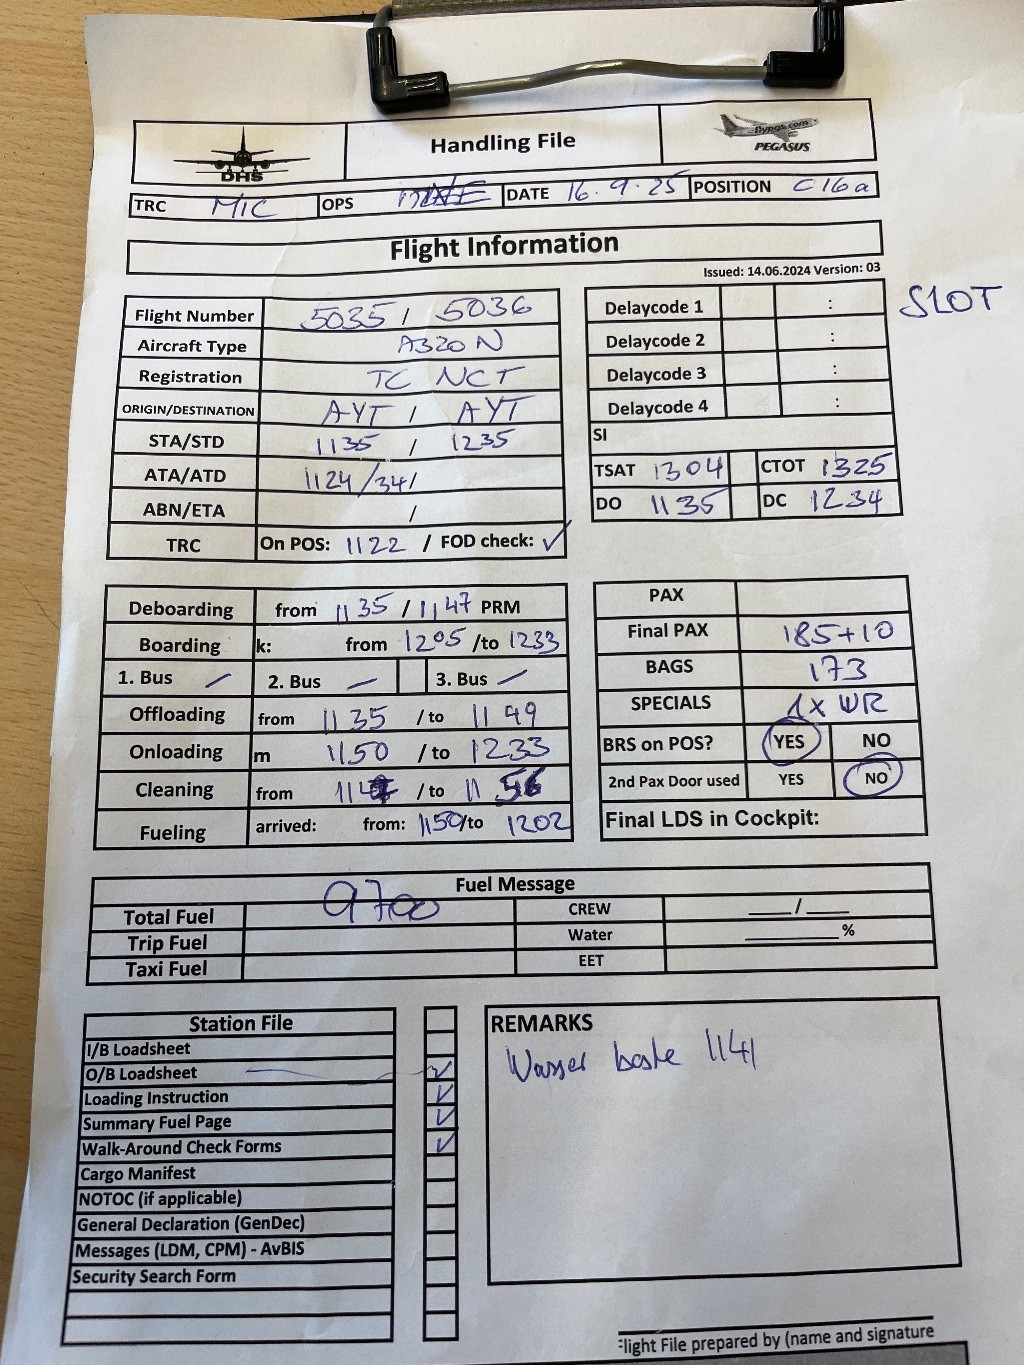 DHS
Handling File
flypgs.com
PEGASUS
TRC MIC OPS DATE 16.9.25 POSITION C16a
Flight Information
Issued: 14.06.2024 Version: 03
SLOT
Flight Number 5035 / 5036
Aircraft Type A320N
Registration TC NCT
ORIGIN/DESTINATION AYT / AYT
STA/STD 1135 / 1235
ATA/ATD 1124/34/
ABN/ETA /
TRC On POS: 1122 / FOD check: ✓
Delaycode 1 :
Delaycode 2 :
Delaycode 3 :
Delaycode 4 :
SI
TSAT 1304 CTOT 1325
DO 1135 DC 1234
Deboarding from 1135 / 1147 PRM
Boarding k: from 1205 /to 1233
1. Bus – 2. Bus – 3. Bus –
Offloading from 1135 / to 1149
Onloading m 1150 / to 1233
Cleaning from / to 1156
Fueling arrived: from: 1150/to 1202
PAX
Final PAX 185+10
BAGS 173
SPECIALS 1x WR
BRS on POS? YES NO
2nd Pax Door used YES NO
Final LDS in Cockpit:
Fuel Message
Total Fuel 9700 CREW ___/___
Trip Fuel Water ______%
Taxi Fuel EET
Station File
I/B Loadsheet
O/B Loadsheet ✓
Loading Instruction ✓
Summary Fuel Page ✓
Walk-Around Check Forms ✓
Cargo Manifest
NOTOC (if applicable)
General Declaration (GenDec)
Messages (LDM, CPM) - AvBIS
Security Search Form
REMARKS
Wasser 1141
light File prepared by (name and signature